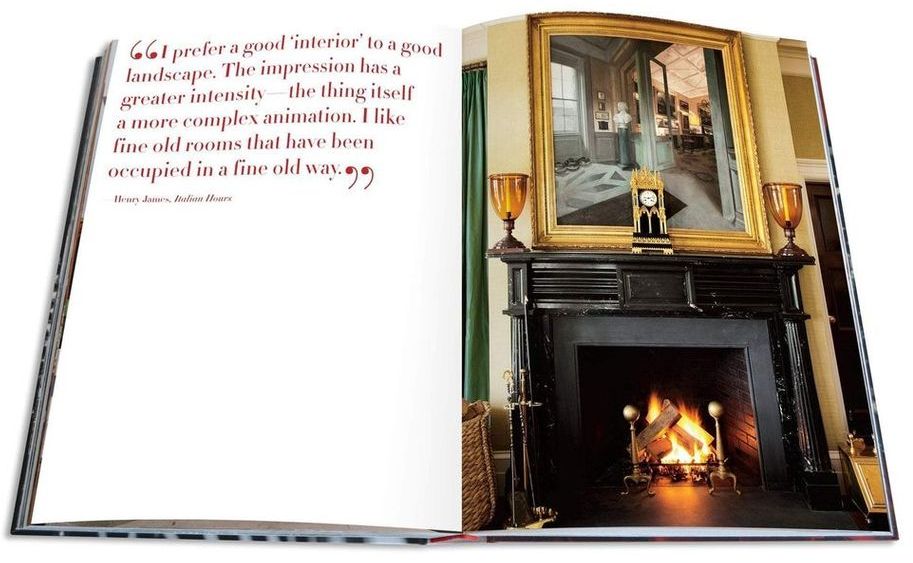 “I prefer a good ‘interior’ to a good
landscape. The impression has a
greater intensity—the thing itself
a more complex animation. I like
fine old rooms that have been
occupied in a fine old way.”
—Henry James, Italian Hours